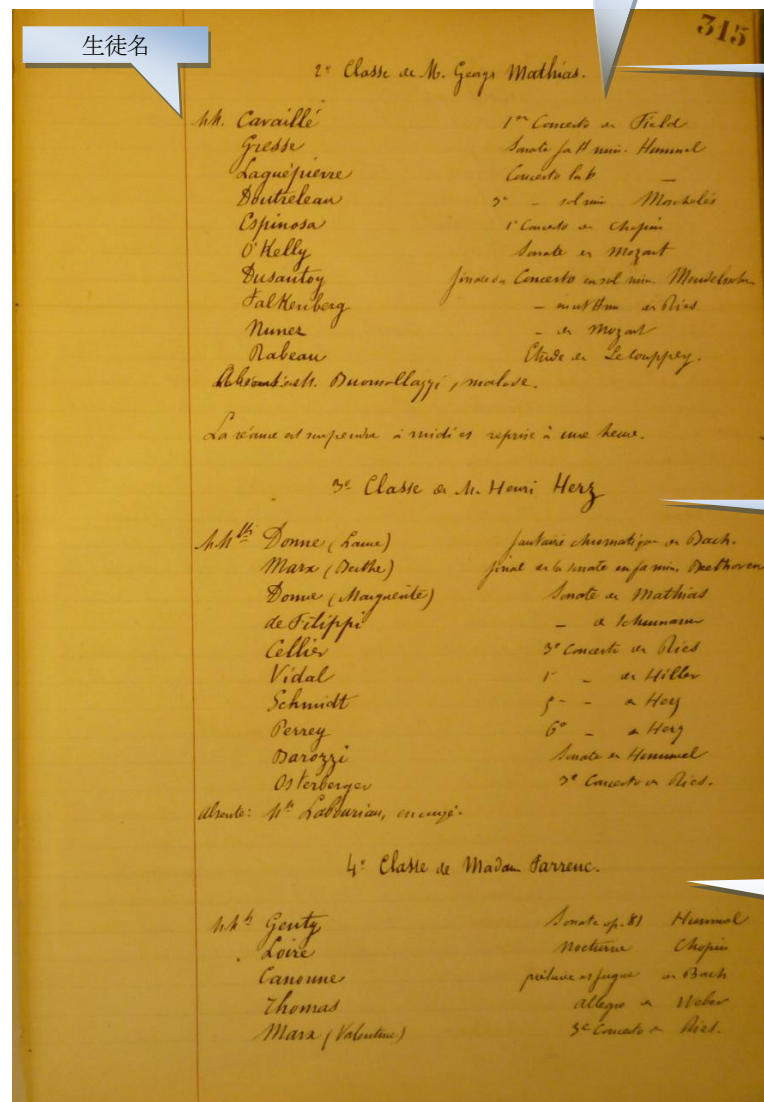 315
生徒名
2e Classe de M. Georges Mathias.
MM. Cavaillé 1er Concerto de Field
Gresse Sonate fa # min. Hummel
Laguépierre Concerto la b —
Doutreleau 3e - sol min Moschelès
Espinosa 1r Concerto de Chopin
O'Kelly Sonate de Mozart
Dusautoy finale du Concerto en sol min. Mendelsohn
Falkenberg - en ut # min de Ries
Nunez - de Mozart
Rabeau Etude de Lecouppey.
Absent: M. , malade.
La séance est suspendue à midi et reprise à une heure.
3e Classe de M. Henri Herz
Melles Donne (Laure) fantaisie chromatique de Bach.
Marx (Berthe) final de la sonate en fa min. Beethoven
Donne (Marguerite) Sonate de Mathias
de Filippi - de Schumann
Cellier 3e Concerto de Ries
Vidal 1r - de Hiller
Schmidt 5e - de Herz
Perrey 6e - de Herz
Barozzi Sonate de Hummel
Osterberger 3e Concerto de Ries.
Absente: Mlle
4e Classe de Madame Farrenc.
Melles Genty Sonate op. 81 Hummel
Loire Nocturne Chopin
Canonne prélude et fugue de Bach
Thomas allegro de Weber
Marx (Valentine) 3e Concerto de Ries.